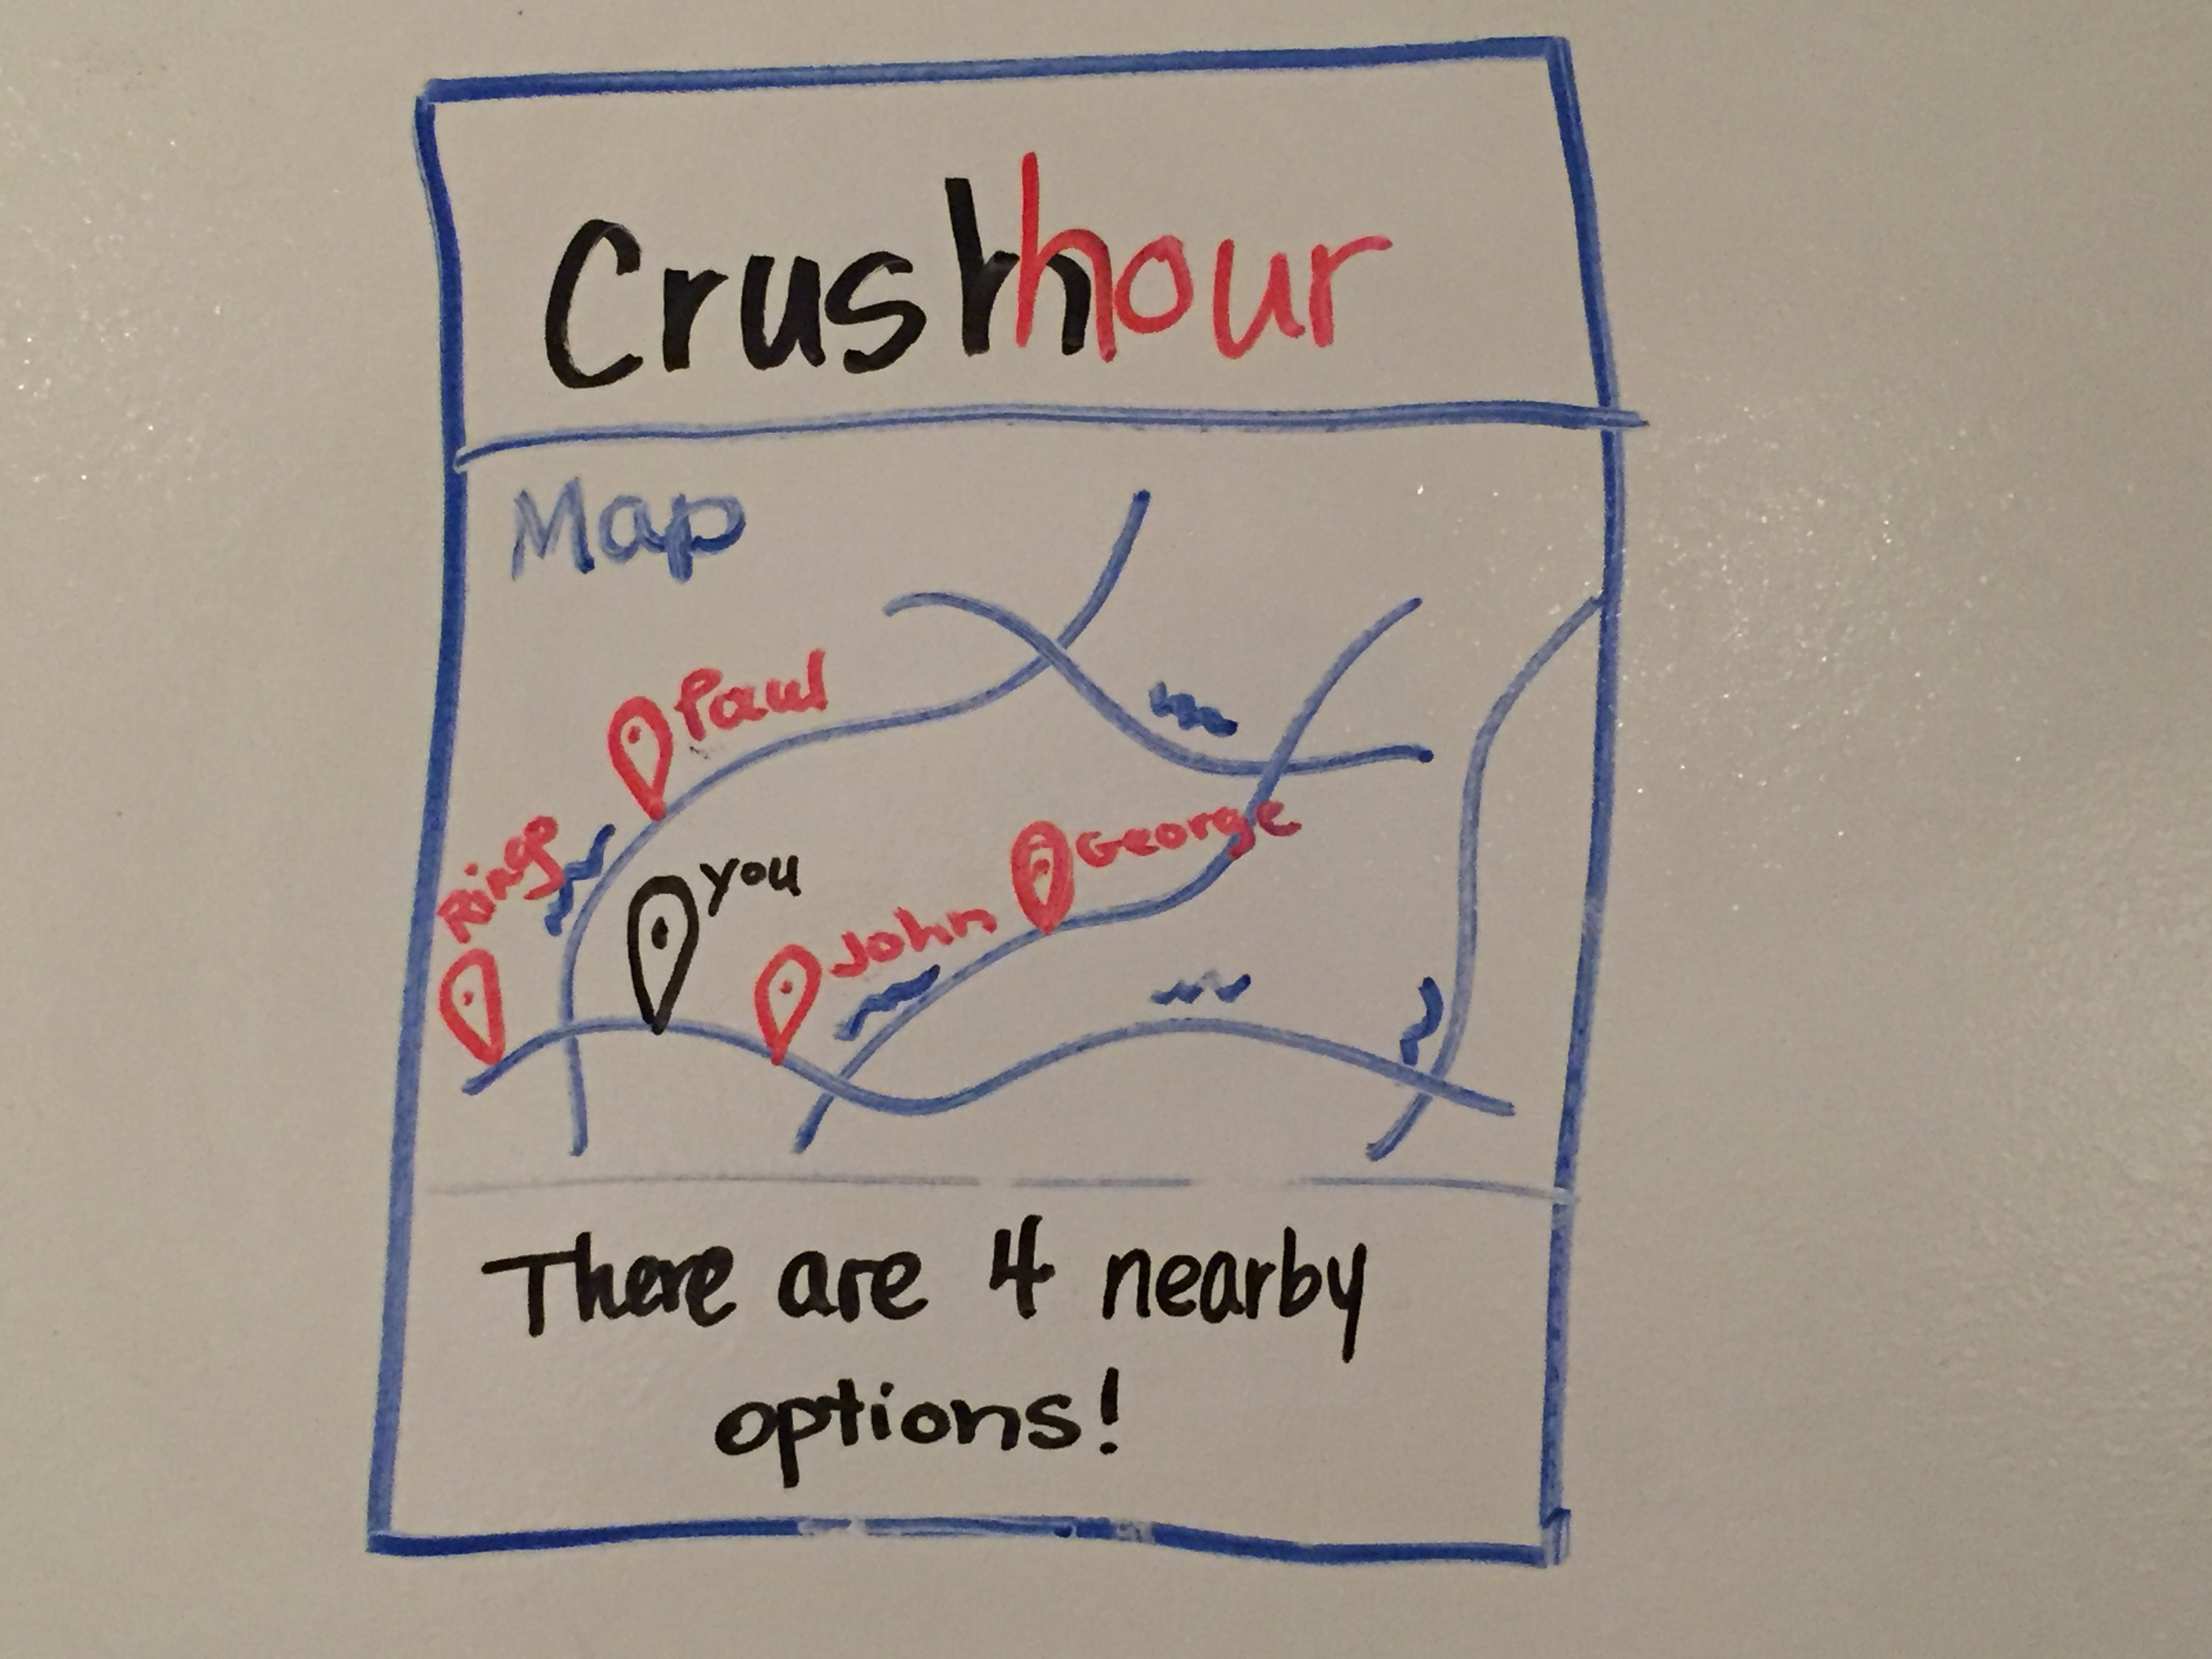 Crushhour
Map
Paul
Ringo
you
George
John
There are 4 nearby
options!